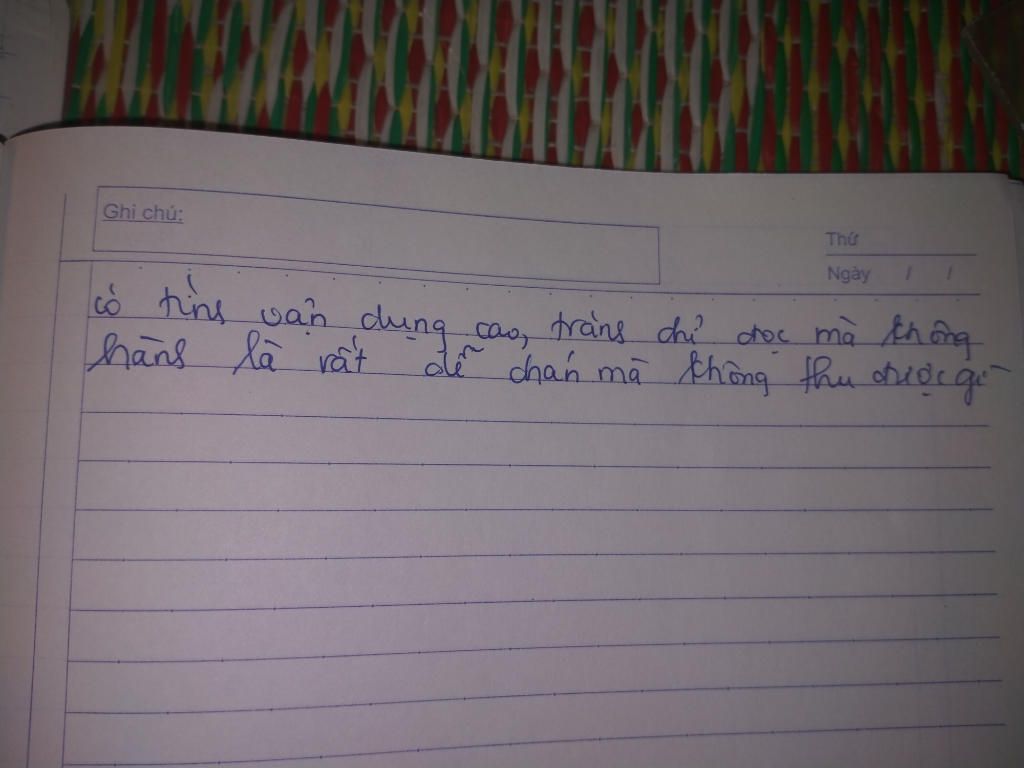 Ghi chú:
Thứ
Ngày / /
có tính vận dụng cao, tránh chỉ đọc mà không
hành là rất dễ chán mà không thu được gì